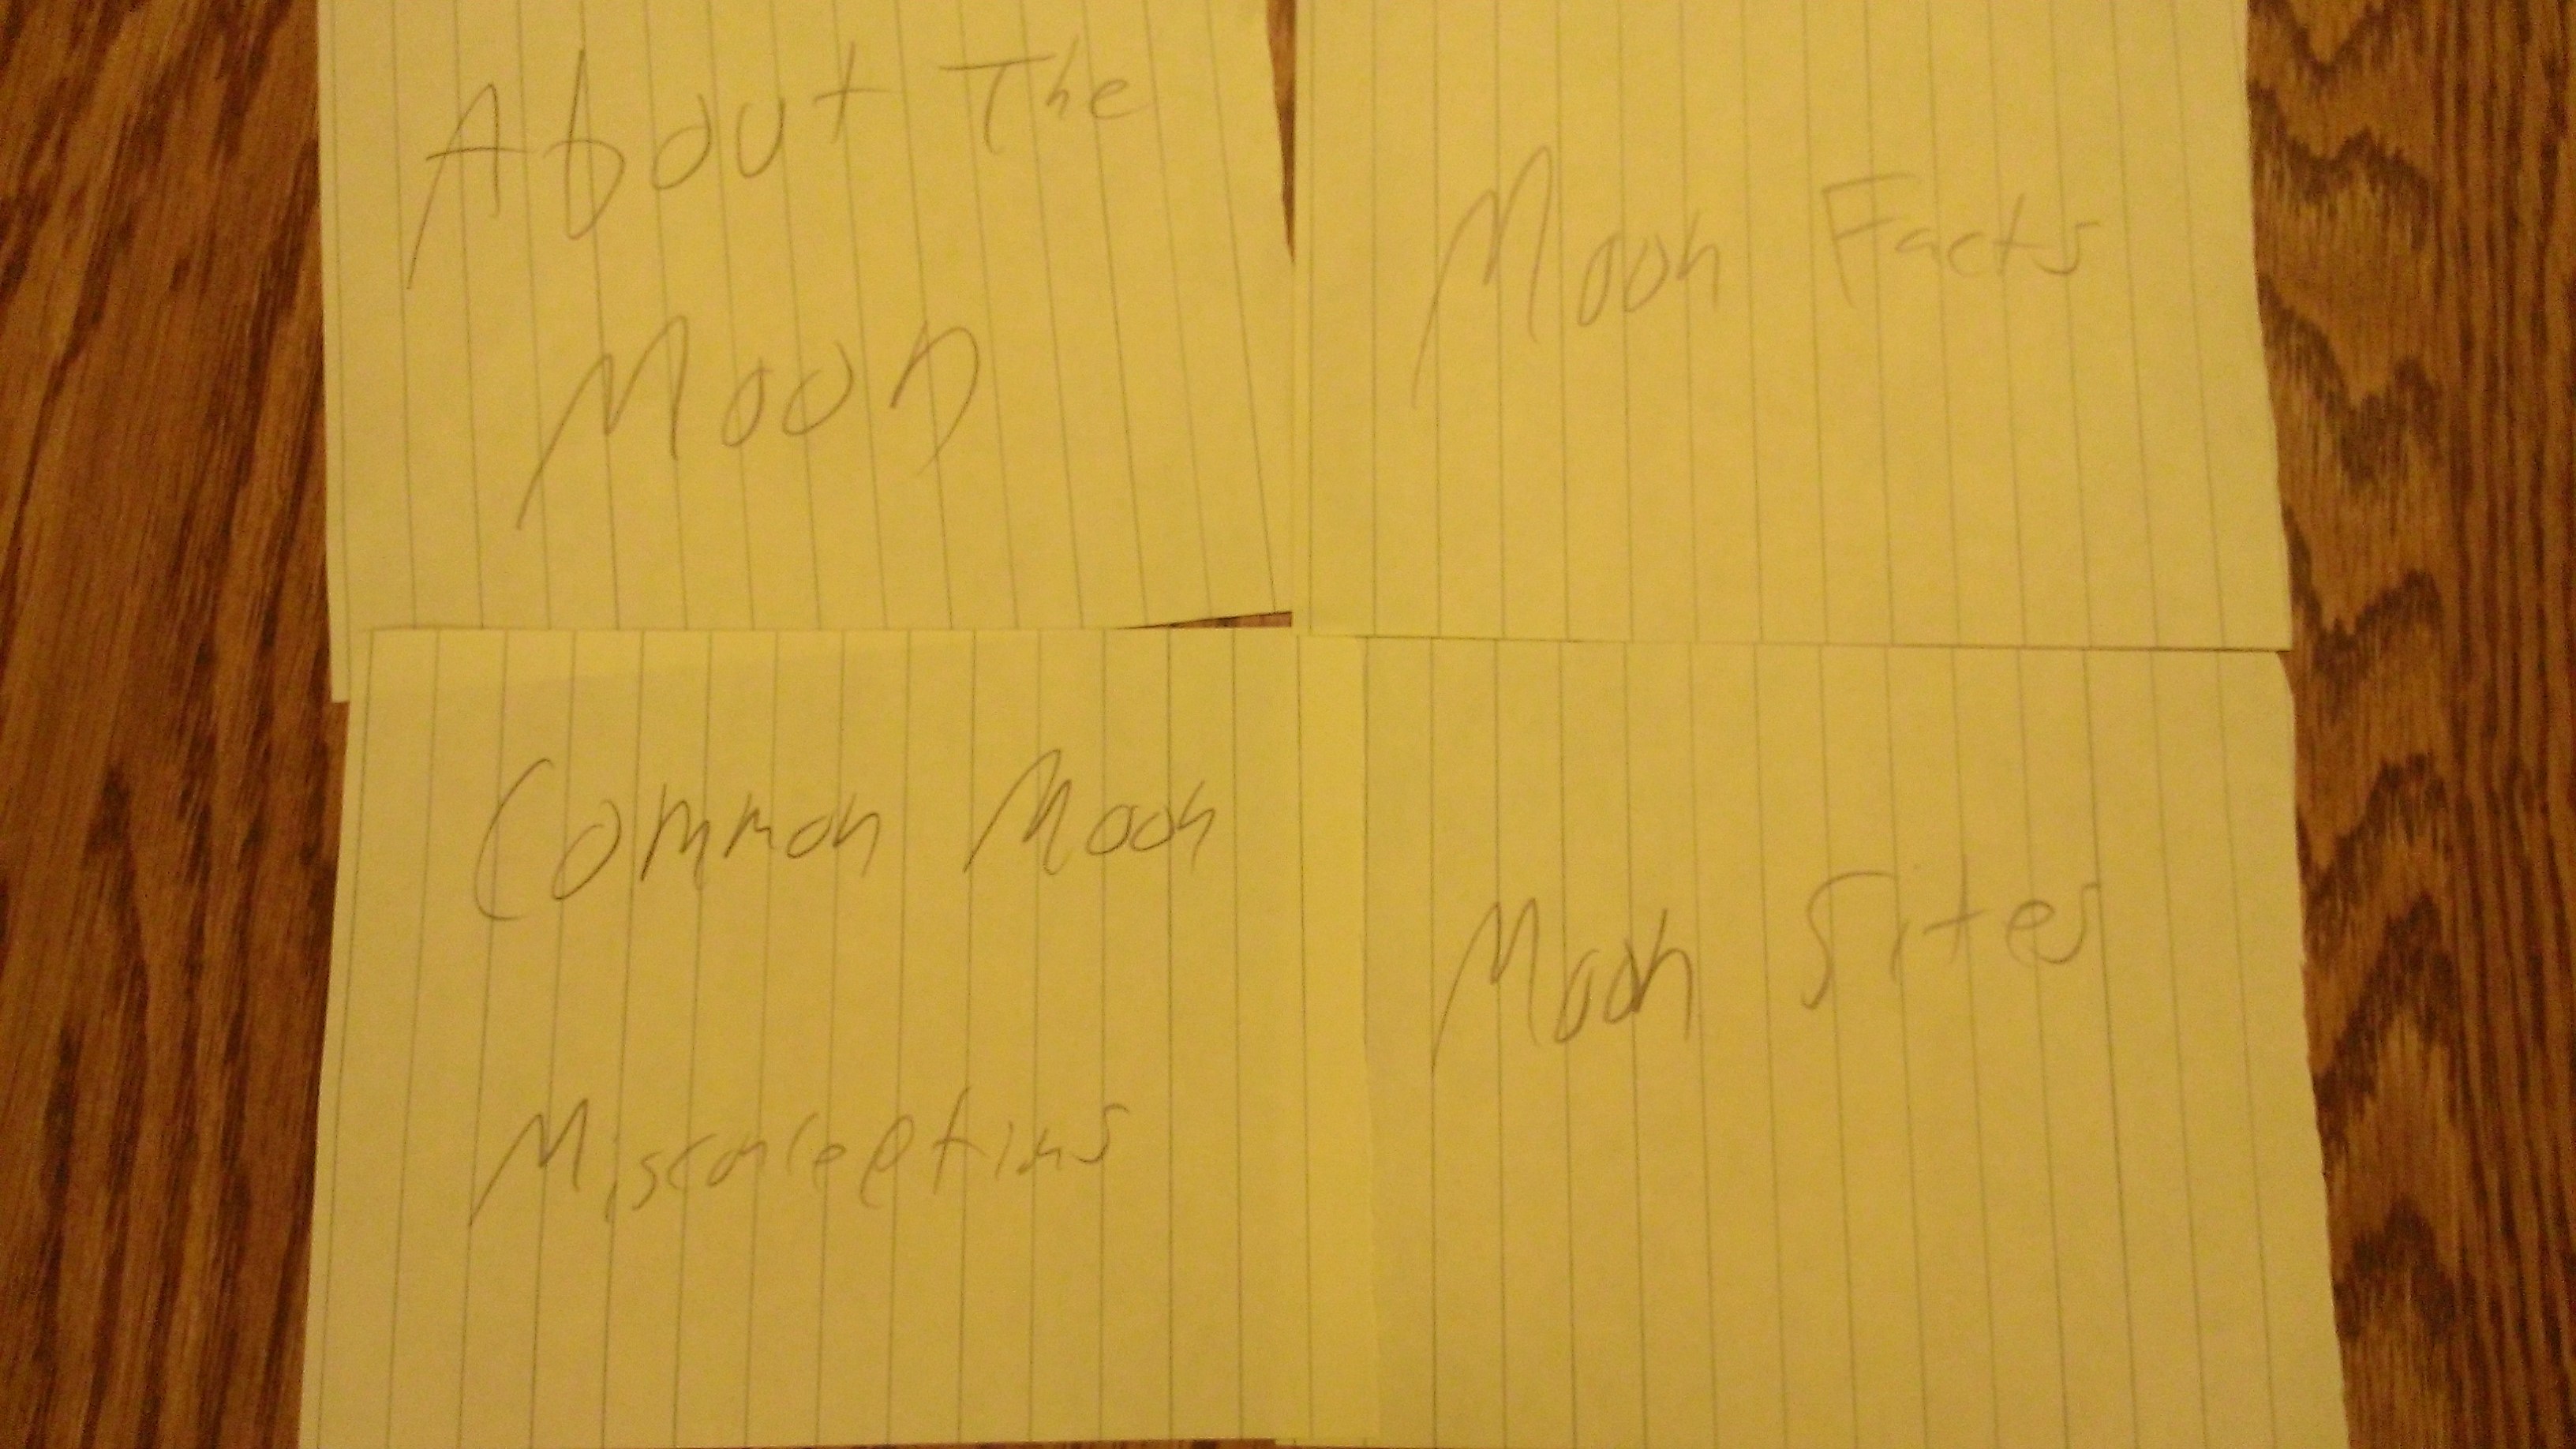 About The
Moon
Moon Facts
Common Moon
Misconceptions
Moon Sites